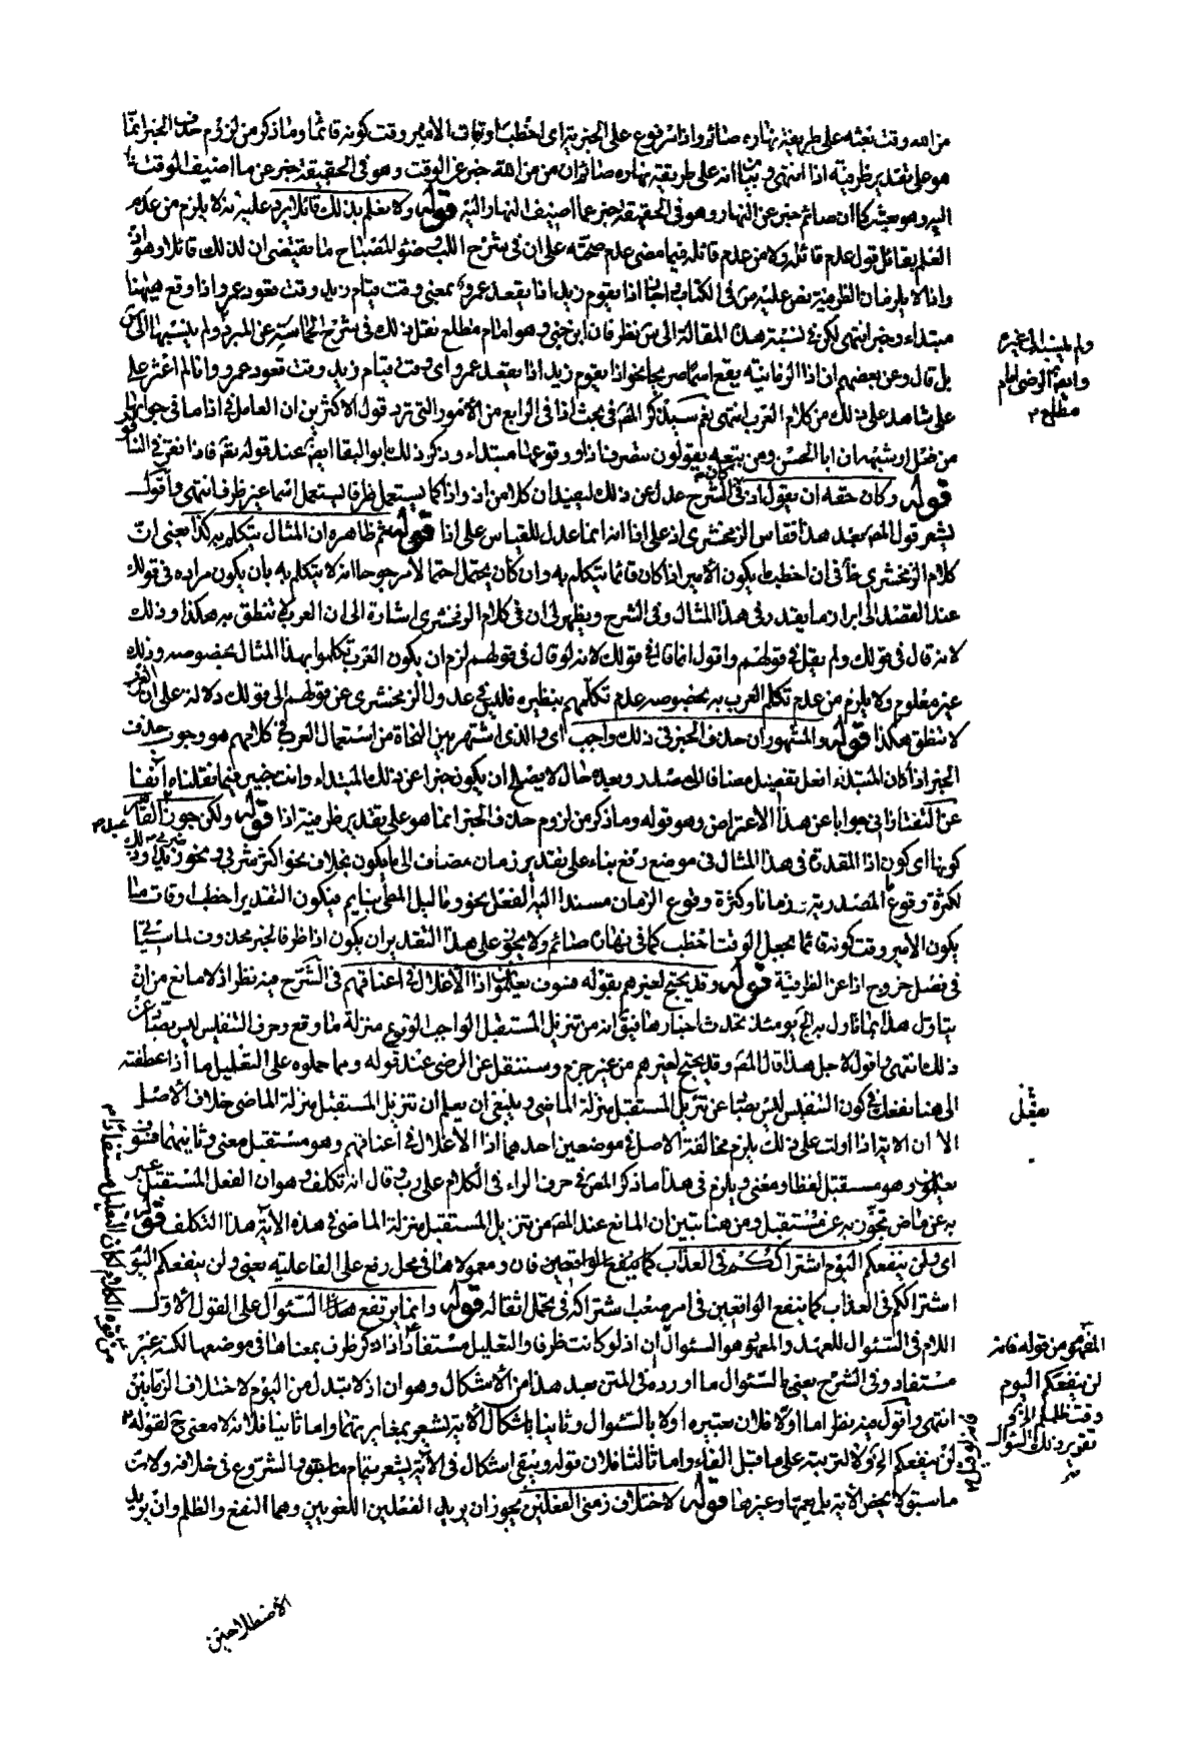 من الله وقت بعثه على طريقة نهاره صائم واذا مرفوع على الخبرية اى اخطب اوقات الامير وقت كونه قائما وما ذكر من لزوم حذف الخبر انما
هو على تقدير ظرفيته اذا انتهى وبيان انه على طريقة نهاره صائم ان من من الله خبر عن الوقت وهو فى الحقيقة خبر عن ما اضيف الوقت
اليه وهو بعثه كما ان صائم خبر عن النهار وهو فى الحقيقة خبر عما اضيف النهار اليه قوله ولا نعلم بذلك قائلا يرد عليه انه لا يلزم من عدم
العلم بقائل قول عدم قائله ولا من عدم قائله فيما مضى عدم صحته على ان فى شرح اللب وضوء المصباح ما يقتضى ان لذلك قائلا وهو
واذا الزمان الظرفية نص عليه من فى الكتاب واجاز اذا يقوم زيد اذا يقعد عمرو بمعنى وقت قيام زيد وقت قعود عمرو واذا وقع ههنا
مبتداء وخبر انتهى لكن فى نسبة هذه المقالة الى س نظر فان ابن جنى وهو امام مطلع نقل ذلك فى شرح الحماسة عن المبرد ولم ينسبها الى س
بل قال وعن بعضهم ان اذا الزمانية يقع اسما صريحا نحو اذا يقوم زيد اذا يقعد عمرو اى وقت قيام زيد وقت قعود عمرو وانا لم اعثر على
على شاهد على ذلك من كلام العرب انتهى نعم سيذكر المص فى بحث اذا فى الرابع من الامور التى ترد قول الاكثرين ان العامل فى اذا ما فى جوابها
من فعل او شبهه ان ابا الحسن ومن تبعه يقولون بتصرف اذا ووقوعها مبتداء وذكر ذلك ابو البقا ايضا عند قوله تعالى فاذا نقر فى الناقور
قوله وكان حقه ان يقول اذ فى الشرح عدل عن ذلك ليفيد ان كلا من اذ واذا كما يستعمل ظرفا يستعمل اسما غير ظرف انتهى واقول
يشعر قول المص بعد هذا فقاس الزمخشرى اذ على اذا انه انما عدل للقياس على اذا قوله ثم ظاهره ان المثال يتكلم به كذا يعنى ان
كلام الزمخشرى فى ان اخطب ما يكون الامير اذا كان قائما يتكلم به وان كان يحتمل احتمالا مرجوحا انه لا يتكلم به بان يكون مراده فى قولك
عند القصد الى ابراز ما يقدر فى هذا المثال وفى الشرح ويظهر لى ان فى كلام الزمخشرى اشارة الى ان العرب لا تنطق به هكذا وذلك
لانه قال فى قولك ولم يقل فى قولهم واقول انما قال فى قولك لانه لو قال فى قولهم لزم ان يكون العرب تكلموا بهذا المثال بخصوصه وذلك
غير معلوم ولا يلزم من عدم تكلم العرب به بخصوصه عدم تكلمهم بنظيره فليس فى عدول الزمخشرى عن قولهم الى قولك دلالة على ان العرب
لا تنطق به هكذا قوله والمشهور ان حذف الخبر فى ذلك واجب اى والذى اشتهر بين النحاة من استعمال العرب فى كلامهم هو وجوب حذف
الخبر اذا كان المبتداء افعل تفضيل مضافا الى مصدر وبعده حال لا يصلح ان يكون خبرا عن ذلك المبتداء وانت خبير بما نقلناه آنفا
عن التفتازانى جوابا عن هذا الاعتراض وهو قوله وما ذكر من لزوم حذف الخبر انما هو على تقدير ظرفية اذا قوله ولكن جوز عبد القاهر
كونها اى كون اذا المقدرة فى هذا المثال فى موضع رفع بناء على تقدير زمان مضاف الى ما يكون بخلاف نحو اكثر شربى ونحو ضربى زيدا وذلك
لكثرة وقوع ما المصدرية زمانا وكثرة وقوع الزمان مسندا اليه الفعل نحو وما ليل المطى بنايم فيكون التقدير اخطب اوقات ما
يكون الامير وقت كونه قائما بجعل الوقت اخطب كما فى نهاره صائم ولا يجوز على هذا التقدير ان يكون اذا ظرفا لخبر محذوف لما سيأتى
فى فصل خروج اذا عن الظرفية قوله وقد يحتج لغيرهم بقوله فسوف يعلمون اذ الاغلال فى اعناقهم فى الشرح فيه نظر اذ لا مانع من ان
يتاول هذا بما تاول به الجمهور يومئذ تحدث اخبارها فيق انه من تنزيل المستقبل الواجب الوقوع منزلة ما وقع وحرف التنفيس ليس بصاد عن
ذلك انتهى واقول لاجل هذا قال المص وقد يحتج لغيرهم من غير جزم وسننقل عن الرضى عند قوله ومما حملوه على التعليل ما اذا عطفته
الى هنا نفعك فى كون التنفيس ليس بصاد عن تنزيل المستقبل منزلة الماضى وينبغى ان يعلم ان تنزيل المستقبل منزلة الماضى خلاف الاصل
الا ان الاية اذا اولت على ذلك يلزم مخالفة الاصل فى موضعين احدهما اذ الاغلال فى اعناقهم وهو مستقبل معنى وثانيهما فسوف
يعلمون وهو مستقبل لفظا ومعنى ويلزم فى هذا ما ذكر المص فى حرف الراء فى الكلام على رب قال انه تكلف وهو ان الفعل المستقبل عبر
به عن ماض تجوز به عن مستقبل ومن هنا تبين ان المانع عند المص من تنزيل المستقبل منزلة الماضى فى هذه الآية هذا التكلف قوله
اى ولن ينفعكم اليوم اشتراككم فى العذاب كما ينفع الواقعين فان ومعمولاها فى محل رفع على الفاعلية يعنى ولن ينفعكم اليوم
اشتراككم فى العذاب كما ينفع الواقعين فى امر صعب اشتراكه فى تحمل اثقاله قوله وانما يرتفع هذا السئوال على القول الاول
اللام فى السئوال للعهد والمعهود هو السئوال ان اذ لو كانت ظرفا والتعليل مستفاد اذا ذكر ظرف بمعناها فى موضعها لكنه غير
مستفاد وفى الشرح يعنى بالسئوال ما اورده فى المتن بعد هذا من الاشكال وهو ان اذ لا تبدل من اليوم لاختلاف الزمانين
انتهى واقول فيه نظر اما اولا فلانه عبر عنه اولا بالسئوال وثانيا باشكال الآية لشعر بمغايرتهما واما ثانيا فلانه لا معنى ح لقوله
لن ينفعكم الخ ولا لترتبه على ما قبل الفاء واما ثالثا فلان قوله ويبقى اشكال فى الآية يشعر بتمام ما سبق والشروع فى خلافه ولان
ما سبق لا يخص الآية بل يعمها وغيرها قوله لاختلاف زمنى الفعلين يجوز ان يريد الفعلين اللغويين وهما النفع والظلم وان يريد
الاصطلاحيين
ولم ينسبها الى غيره
وايضا الرضى امام
مطلع م
عبد م
يعقل
من قوة الكلام لكان التعليل مستفادا م
المفهوم من قوله فانه
لن ينفعكم اليوم
وقت ظلمكم الخ
تقرير ذلك السئوال